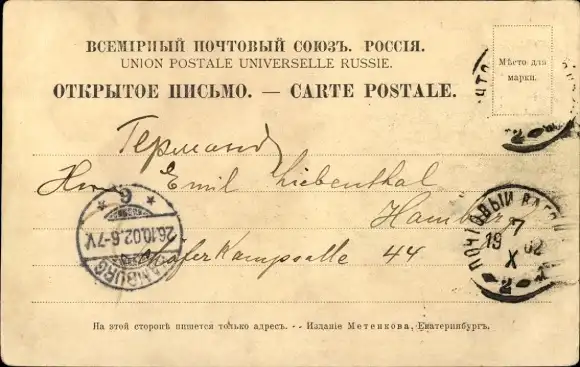 ВСЕМІРНЫЙ ПОЧТОВЫЙ СОЮЗЪ. РОССІЯ.
UNION POSTALE UNIVERSELLE RUSSIE.
ОТКРЫТОЕ ПИСЬМО. — CARTE POSTALE.
Мѣсто для
марки.
Herrn Emil Liebenthal
Hamburg
44
* 6 *
26.10.02.6-7V.
HAMBURG
ПОЧТОВЫЙ ВАГОН
7
19 02
X
2
На этой сторонѣ пишется только адресъ. -- Изданіе Метенкова, Екатеринбургъ.